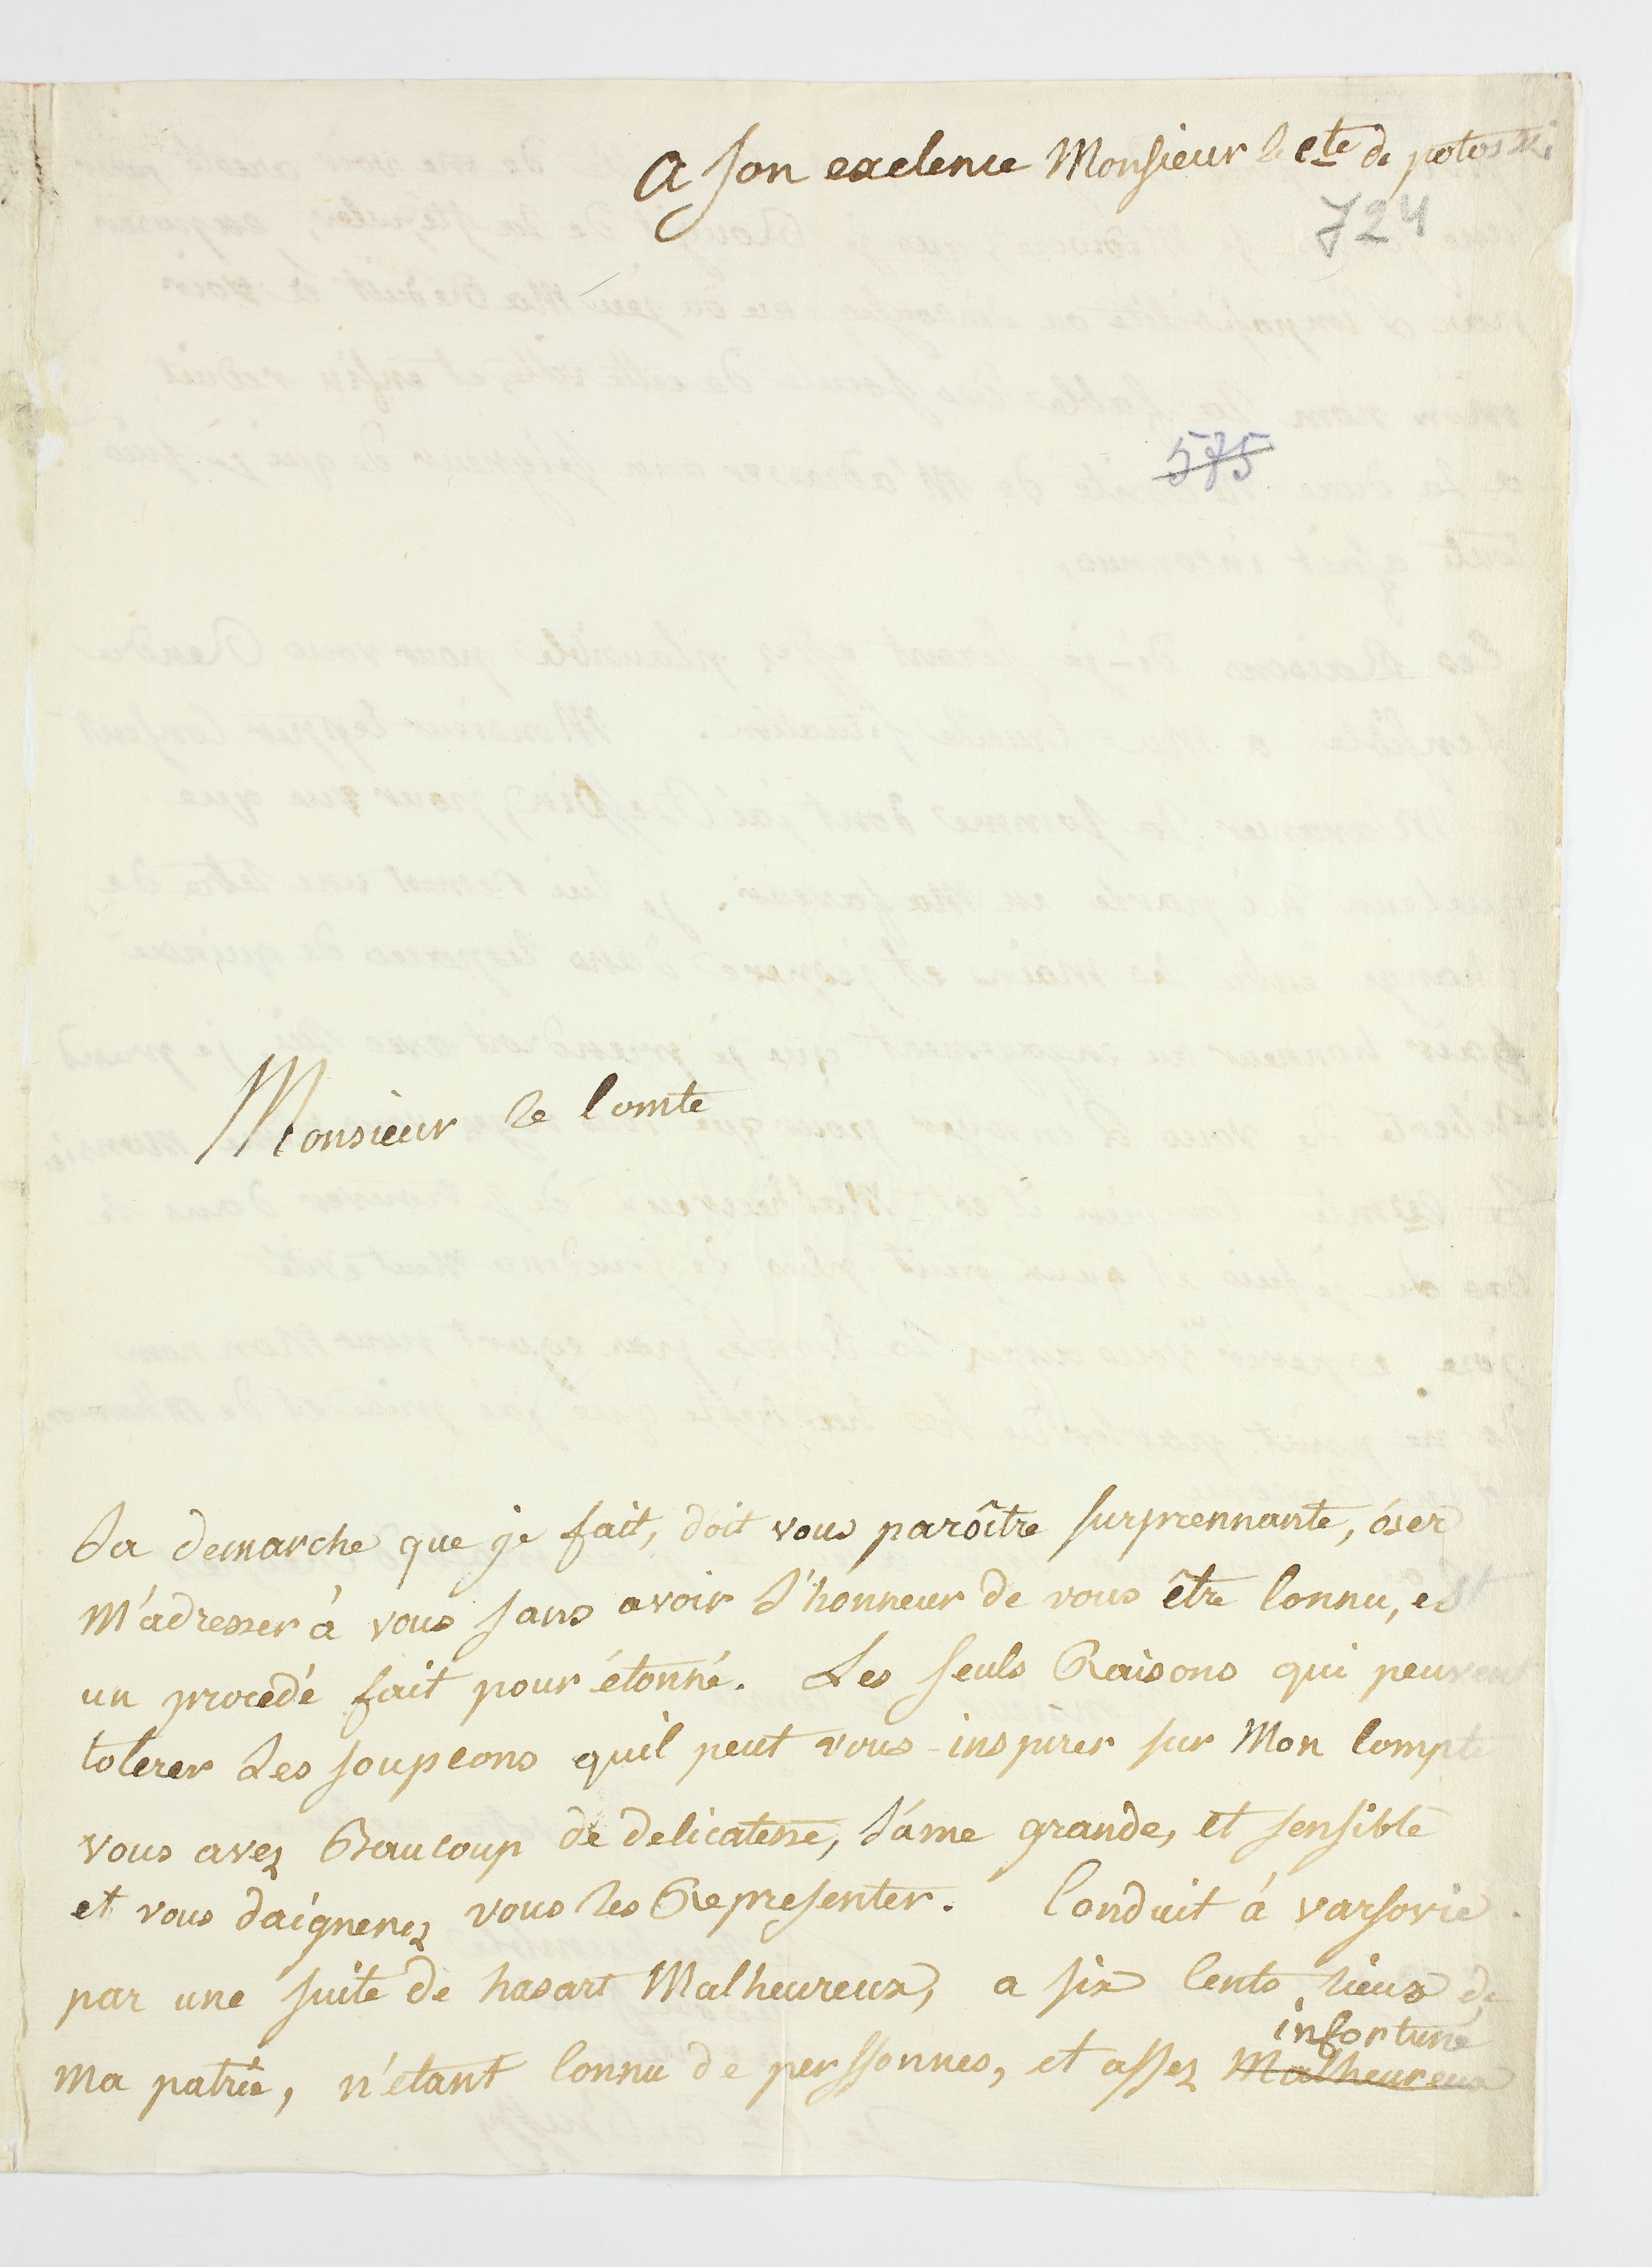 A son exelence Monsieur le Cte de potoski
724
575
Monsieur le Comte
La demarche que je fait, doit vous parôitre surprennante, óser
M'adresser à vous sans avoir l'honneur de vous être Connu, est
un procédé fait pour étonné. Les seuls Raisons qui peuvent
tolerer les soupcons quil peut vous inspirer sur Mon Compte
vous avez Beaucoup de delicatesse, l'áme grande, et sensible
et vous daígnerez vous les Representer. Conduit à varsovie
par une suite de hasart Malheureux, a six Cents lieux de
infortuné
Ma patrie, n'étant Connu de perssonnes, et assez Malheureux